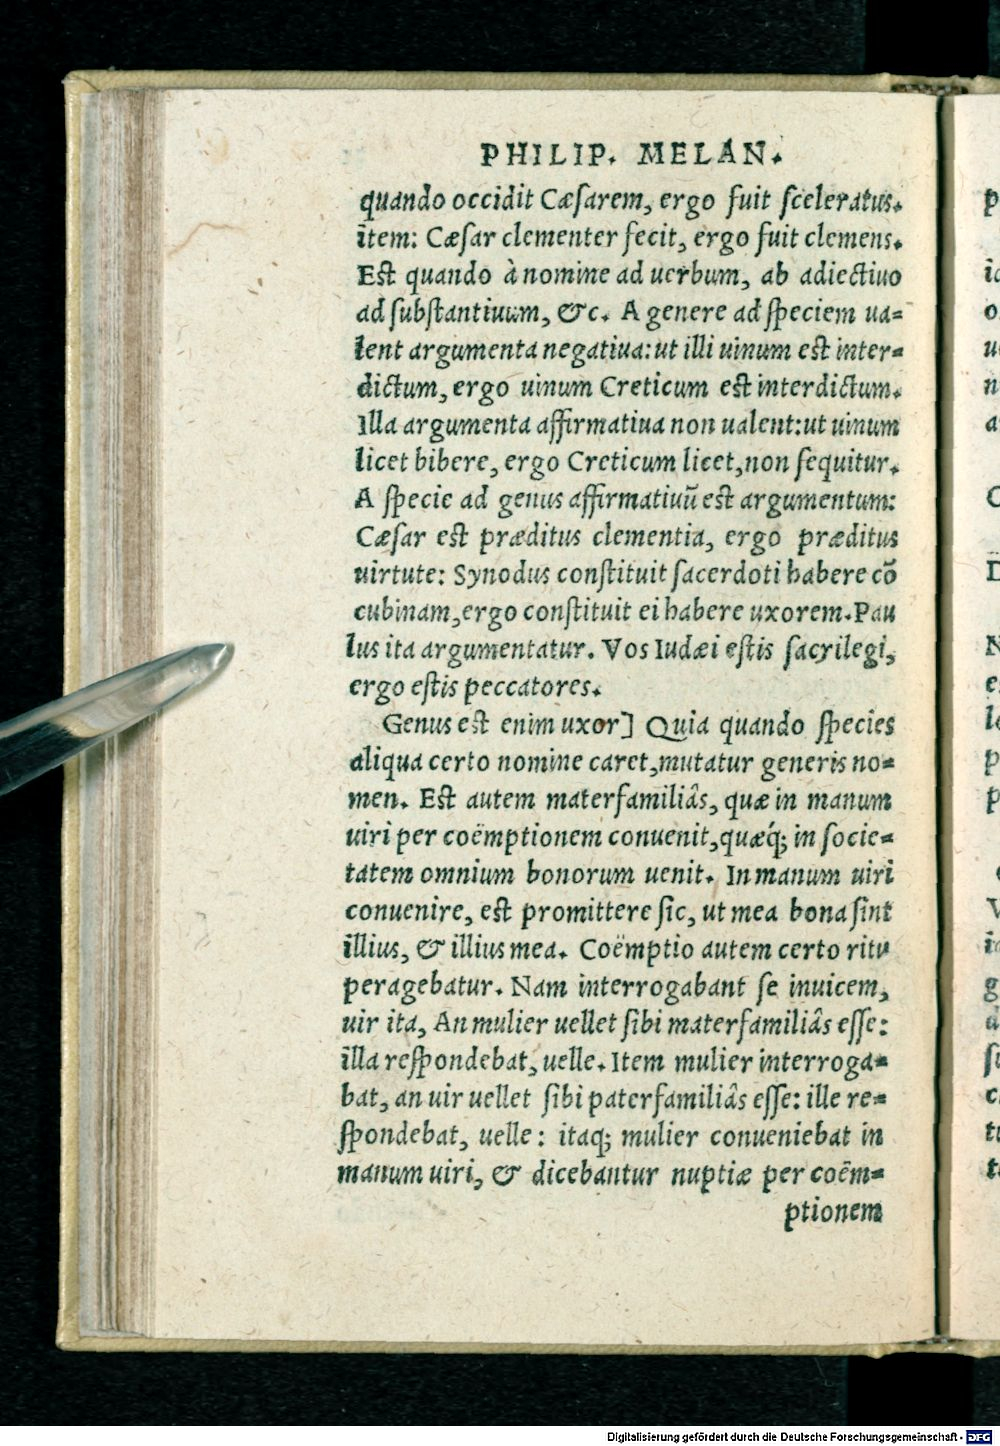 PHILIP. MELAN.
quando occidit Cæsarem, ergo fuit sceleratus.
item: Cæsar clementer fecit, ergo fuit clemens.
Est quando à nomine ad uerbum, ab adiectiuo
ad substantiuum, &c. A genere ad speciem ua-
lent argumenta negatiua: ut illi uinum est inter-
dictum, ergo uinum Creticum est interdictum.
Illa argumenta affirmatiua non ualent: ut uinum
licet bibere, ergo Creticum licet, non sequitur.
A specie ad genus affirmatiuũ est argumentum:
Cæsar est præditus clementia, ergo præditus
uirtute: Synodus constituit sacerdoti habere cõ
cubinam, ergo constituit ei habere uxorem. Pau
lus ita argumentatur. Vos Iudæi estis sacrilegi,
ergo estis peccatores.
Genus est enim uxor] Quia quando species
aliqua certo nomine caret, mutatur generis no-
men. Est autem materfamiliâs, quæ in manum
uiri per coëmptionem conuenit, quæq́; in socie-
tatem omnium bonorum uenit. In manum uiri
conuenire, est promittere sic, ut mea bona sint
illius, & illius mea. Coëmptio autem certo ritu
peragebatur. Nam interrogabant se inuicem,
uir ita, An mulier uellet sibi materfamiliâs esse:
illa respondebat, uelle. Item mulier interroga-
bat, an uir uellet sibi paterfamiliâs esse: ille re-
spondebat, uelle: itaq; mulier conueniebat in
manum uiri, & dicebantur nuptiæ per coëm-
ptionem
Digitalisierung gefördert durch die Deutsche Forschungsgemeinschaft - DFG